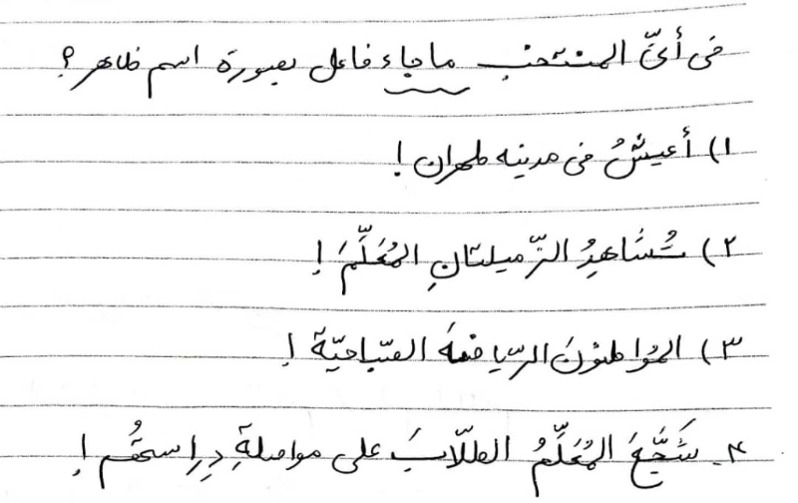 فی أیِّ المنتخب ماجاء فاعل بصورة اسم ظاهر؟
۱) أعیشُ فی مدینه طهران!
۲) تُشَاهِدُ الزّمیلتانِ المُعَلَّمَ!
۳) المُواطنونَ الرّیاضهَ الصّباحیّة!
۴ـ شَجَّعَ المُعَلِّمُ الطلّابَ علی مواصلةِ دِراستهُم!